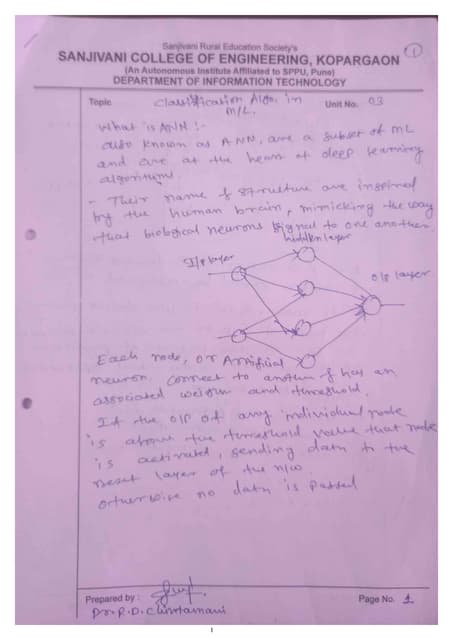 Sanjivani Rural Education Society's
SANJIVANI COLLEGE OF ENGINEERING, KOPARGAON
(An Autonomous Institute Affiliated to SPPU, Pune)
DEPARTMENT OF INFORMATION TECHNOLOGY
1
Topic Classification Algo. in Unit No. 03
M/L.
What is ANN :-
also known as ANN, are a subset of ML
and are at the heart of deep learning
algoritums.
- Their name & structure are inspired
by the human brain, mimicking the way
that biological neurons signal to one another.
hidden layer
I/p layer
o/p layer
Each node, or Artificial
neuron connect to another & has an
associated weight and threshold.
If the o/p of any individual node
is above the threshold value that node
is activated, sending data to the
next layer of the n/w
otherwise no data is passed
Prepared by : Page No. 1
Dr. R.D. Chintamani
1